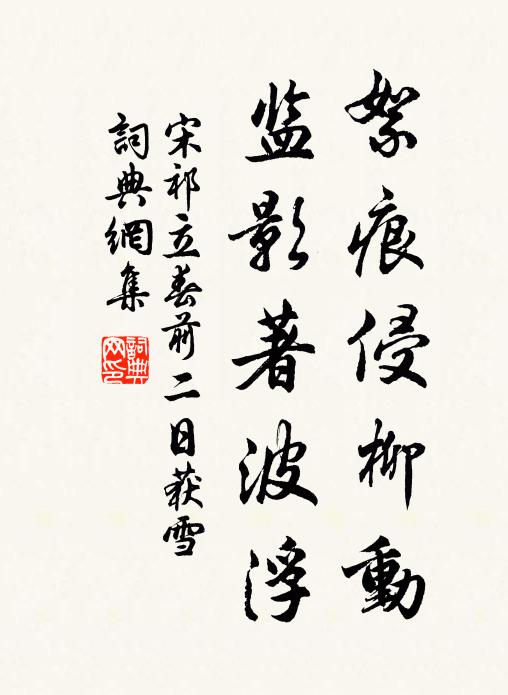 絮痕侵柳動
监影著波浮
宋祁立春前二日获雪
詞典網集
詞典
网印